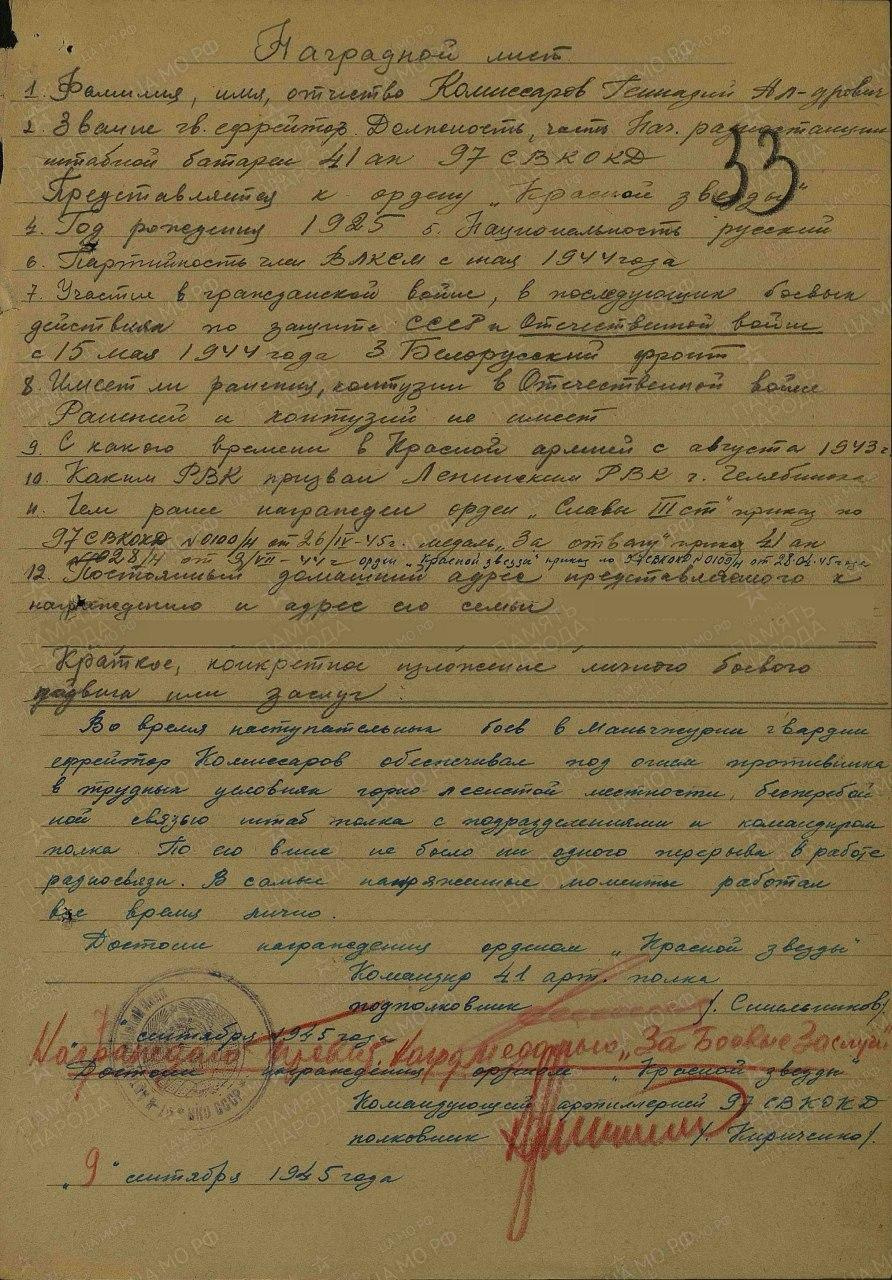 Наградной лист
1. Фамилия, имя, отчество Комиссаров Геннадий Ал-дрович
2. Звание гв. ефрейтор. Должность, часть Нач. радиостанции
штабной батареи 41 ап 97 СВКОКД
33
Представляется к ордену „Красной звезды"
4. Год рождения 1925 5. Национальность русский
6. Партийность член ВЛКСМ с мая 1944 года
7. Участие в гражданской войне, в последующих боевых
действиях по защите СССР и Отечественной войне
с 15 мая 1944 года 3 Белорусский фронт
8. Имеет ли ранения, контузии в Отечественной войне
Ранений и контузий не имеет
9. С какого времени в Красной армией с августа 1943 г
10. Каким РВК призван Ленинским РВК г. Челябинска
11. Чем ранее награжден орден „Славы III ст" приказ по
97 СВКОКД №0100/н от 26/IV-45г. медаль „За отвагу" приказ 41 ап
№028/н от 9/VII-44г орден „Красной звезды" приказ по 97СВКОКД №0109/н от 28.04.45 года
12. Постоянный домашний адрес представляемого к
награждению и адрес его семьи
Краткое, конкретное изложение личного боевого
подвига или заслуг:
Во время наступательных боев в Маньчжурии гвардии
ефрейтор Комиссаров обеспечивал под огнем противника
в трудных условиях горно-лесистой местности, бесперебой
ной связью штаб полка с подразделениями и командиром
полка По его вине не было ни одного перерыва в работе
радиосвязи. В самые напряженные моменты работал
все время лично.
Достоин награждения орденом „Красной звезды"
Командир 41 арт. полка
подполковник /. Синельников/
„7" сентября 1945 года
Награжден медалью „За Боевые Заслуги"
Достоин награждения орденом „Красной звезды"
Командующий артиллерией 97 СВКОКД
полковник /. Кириченко/.
„9" сентября 1945 года
НКО СССР
ПАМЯТЬ НАРОДА
ЦАМО.РФ